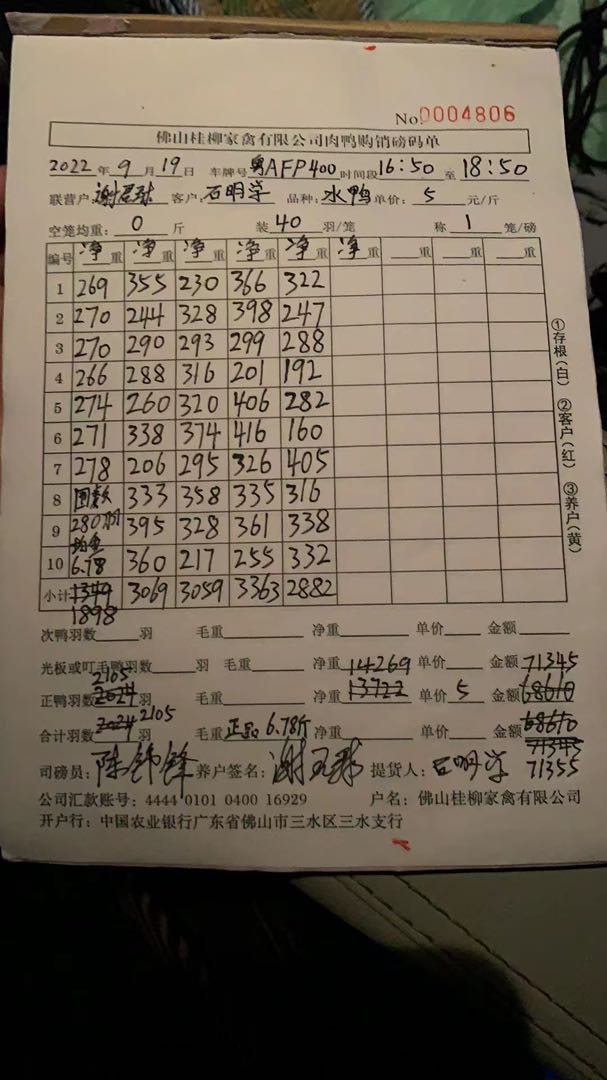 No.0004806
佛山桂柳家禽有限公司肉鸭购销磅码单
2022年9月19日 车牌号粤AFP400时间段16:50至18:50
联营户: 客户:石明学 品种:水鸭单价:5元/斤
空笼均重:0斤 装40羽/笼 称1笼/磅
编号 净重 净重 净重 净重 净重 净重 重 重 重
1 269 355 230 366 322
2 270 244 328 398 247
3 270 290 293 299 288
4 266 288 316 201 192
5 274 260 320 406 282
6 271 338 374 416 160
7 278 206 295 326 405
8 333 358 335 316
9 280 395 328 361 338
10 6.78 360 217 255 332
小计 1349 3069 3059 3363 2882
1898
次鸭羽数 羽 毛重 净重 单价 金额
光板或叮毛鸭羽数 羽 毛重 净重14269 单价 金额71345
2105
正鸭羽数2024羽 毛重 净重13722 单价5 金额68610
合计羽数2024 2105羽 毛重正品6.78斤 净重 单价 金额68610
71345
司磅员: 养户签名: 提货人:石明学 71355
公司汇款账号: 4444 0101 0400 16929 户名: 佛山桂柳家禽有限公司
开户行: 中国农业银行广东省佛山市三水区三水支行
①存根(白) ②客户(红) ③养户(黄)